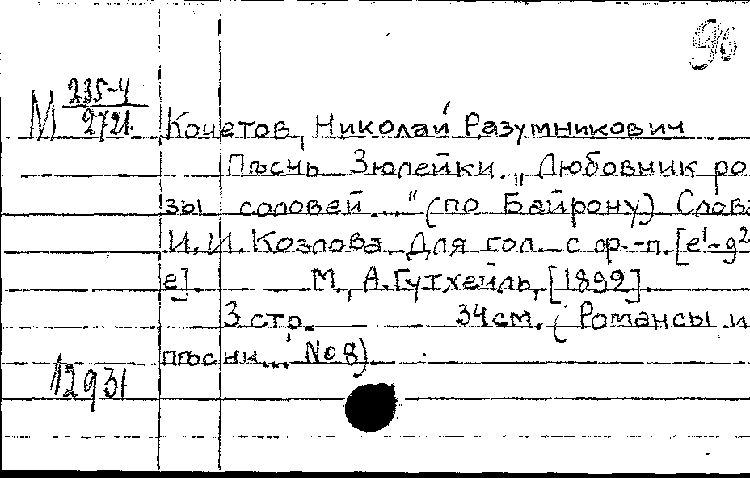 96
М 235-4
2721
Кочетов, Николай Разумникович
Пѣснь Зюлейки. „Любовник ро-
зы соловей..." (по Байрону) Слова
И.И. Козлова. Для гол. с ф.-п. [e¹-g²
e]. М., А. Гутхейль, [1892].
3 стр. 34 см. (Романсы и
пѣсни... № 8).
12931